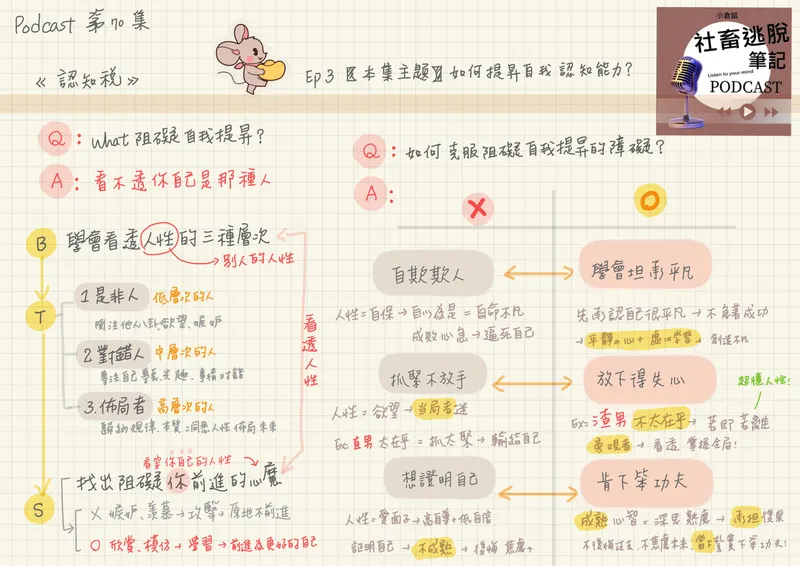 Podcast 第70集
《認知稅》
Ep3【本集主題】如何提昇自我認知能力?
小倉鼠
社畜逃脫
筆記
Listen to your mind
PODCAST
Q: What 阻礙自我提昇?
A: 看不透你自己是那種人
B 學會看透人性的三種層次
別人的人性
T
1 是非人 低層次的人
關注他人八卦、欲望、嫉妒
2 對錯人 中層次的人
專注自己專長、興趣、專精對錯
3. 佈局者 高層次的人
歸納規律、本質=洞悉人性佈局未來
看透人性
看穿你自己的人性
S 找出阻礙你前進的心魔
X 嫉妒、羨慕→攻擊→原地不前進
O 欣賞、模仿→學習→前進為更好的自己
Q: 如何克服阻礙自我提昇的障礙?
A:
X O
自欺欺人 學會坦承平凡
人性=自保→自以為是=自命不凡
成敗心急→逼死自己
先承認自己很平凡→不急著成功
→平靜の心+虛心學習→創造不凡
抓緊不放手 放下得失心
超懂人性!
人性=欲望→當局者迷
Ex: 直男 太在乎=抓太緊→輸給自己
Ex= 渣男 不太在乎→若即若離
旁觀者→看透 掌握全局!
想證明自己 背下笨功夫
人性=愛面子→高自尊+低自信
証明自己→不成熟→後悔 焦慮
成熟心智=深思熟慮→承担後果
不後悔过去、不焦慮未來、當下紮實下笨功夫!